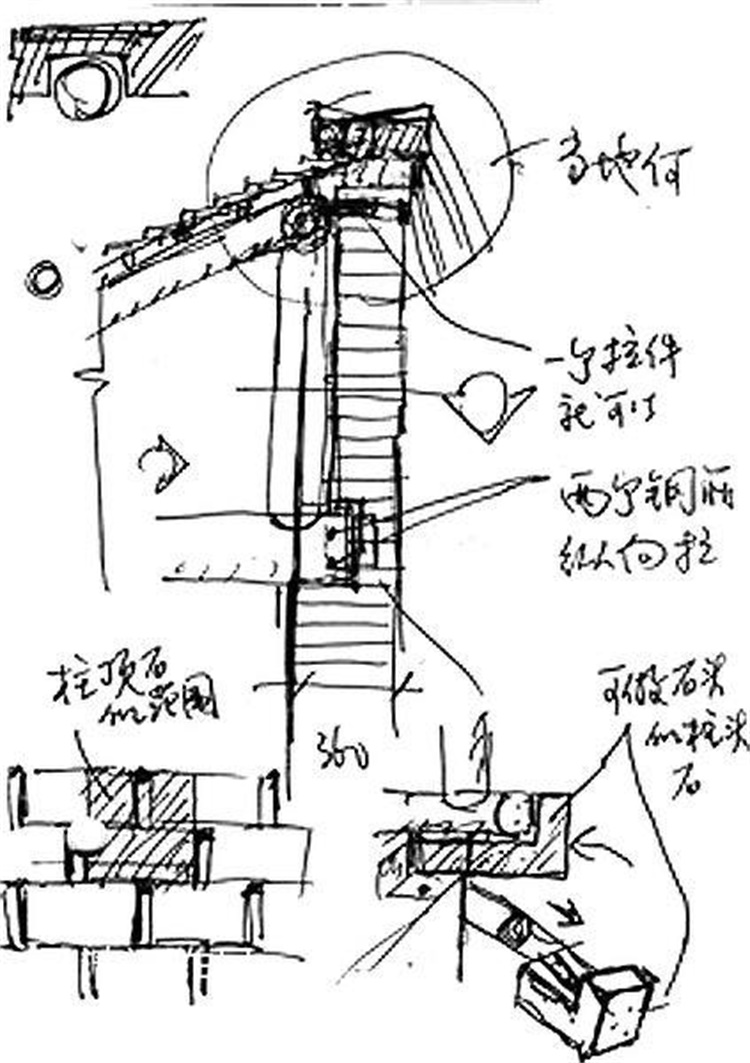 当地何
一个拉件
就可以
两个钢筋
纵向拉
柱顶石
的范围
360
可做石头
的柱头
石